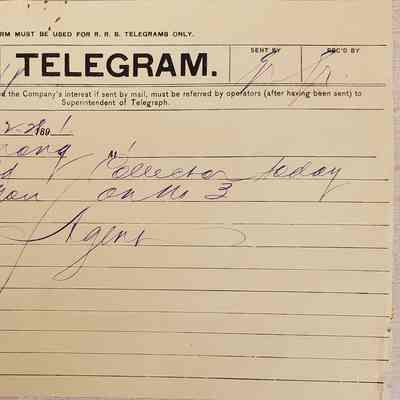 RM MUST BE USED FOR R. R. B. TELEGRAMS ONLY.
TELEGRAM.
SENT BY
REC'D BY
the Company's interest if sent by mail, must be referred by operators (after having been sent) to
Superintendent of Telegraph.
189 1
Collector today
on No 3
Agent